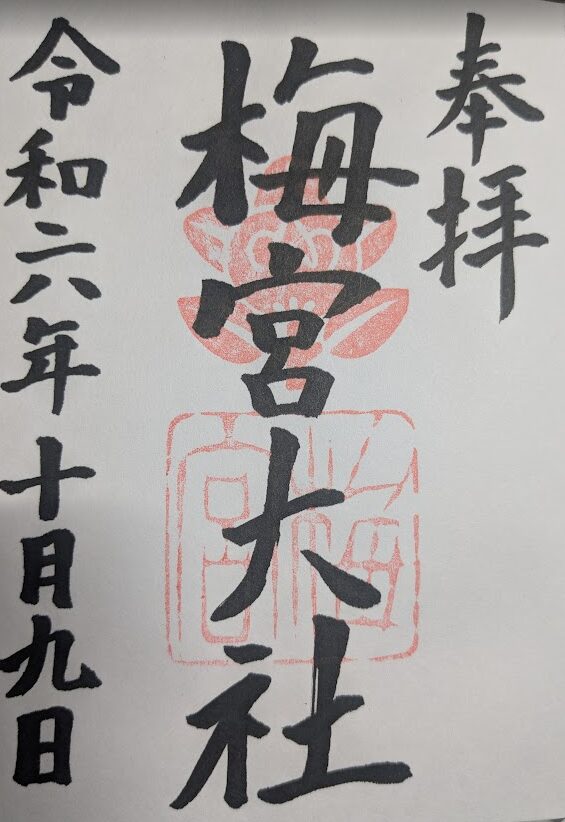 奉拝
梅宮大社
令和六年十月九日
梅宮